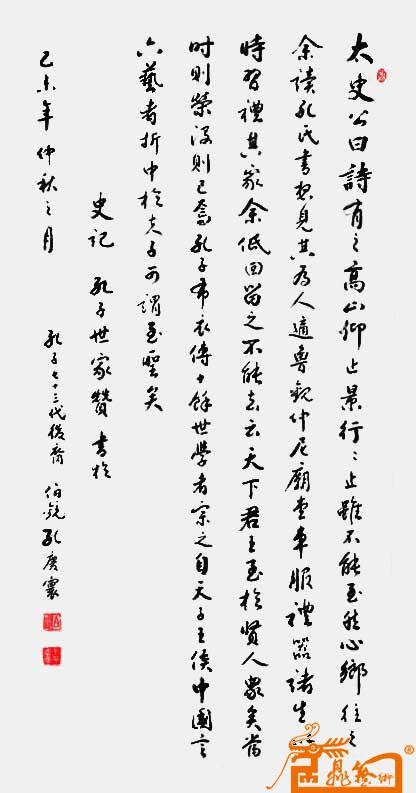 太史公曰詩有之高山仰止景行〻止雖不能至然心鄉往之
余讀孔氏書想見其為人適魯觀仲尼廟堂車服禮器諸生以
時習禮其家余低回留之不能去云天下君王至於賢人眾矣當
時則榮沒則已焉孔子布衣傳十餘世學者宗之自天子王侯中國言
六藝者折中於夫子可謂至聖矣
史記 孔子世家贊 書於
己未年仲秋之月
孔子七十三代後裔 伯銳孔慶襄